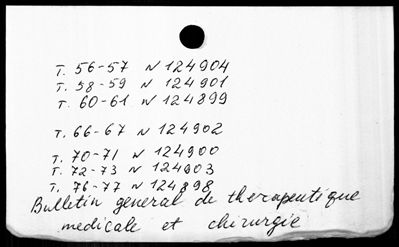 T. 56-57 N 124904
T. 58-59 N 124901
T. 60-61 N 124899
T. 66-67 N 124902
T. 70-71 N 124900
T. 72-73 N 124903
T. 76-77 N 124898
Bulletin general de therapeutique
medicale et chirurgie